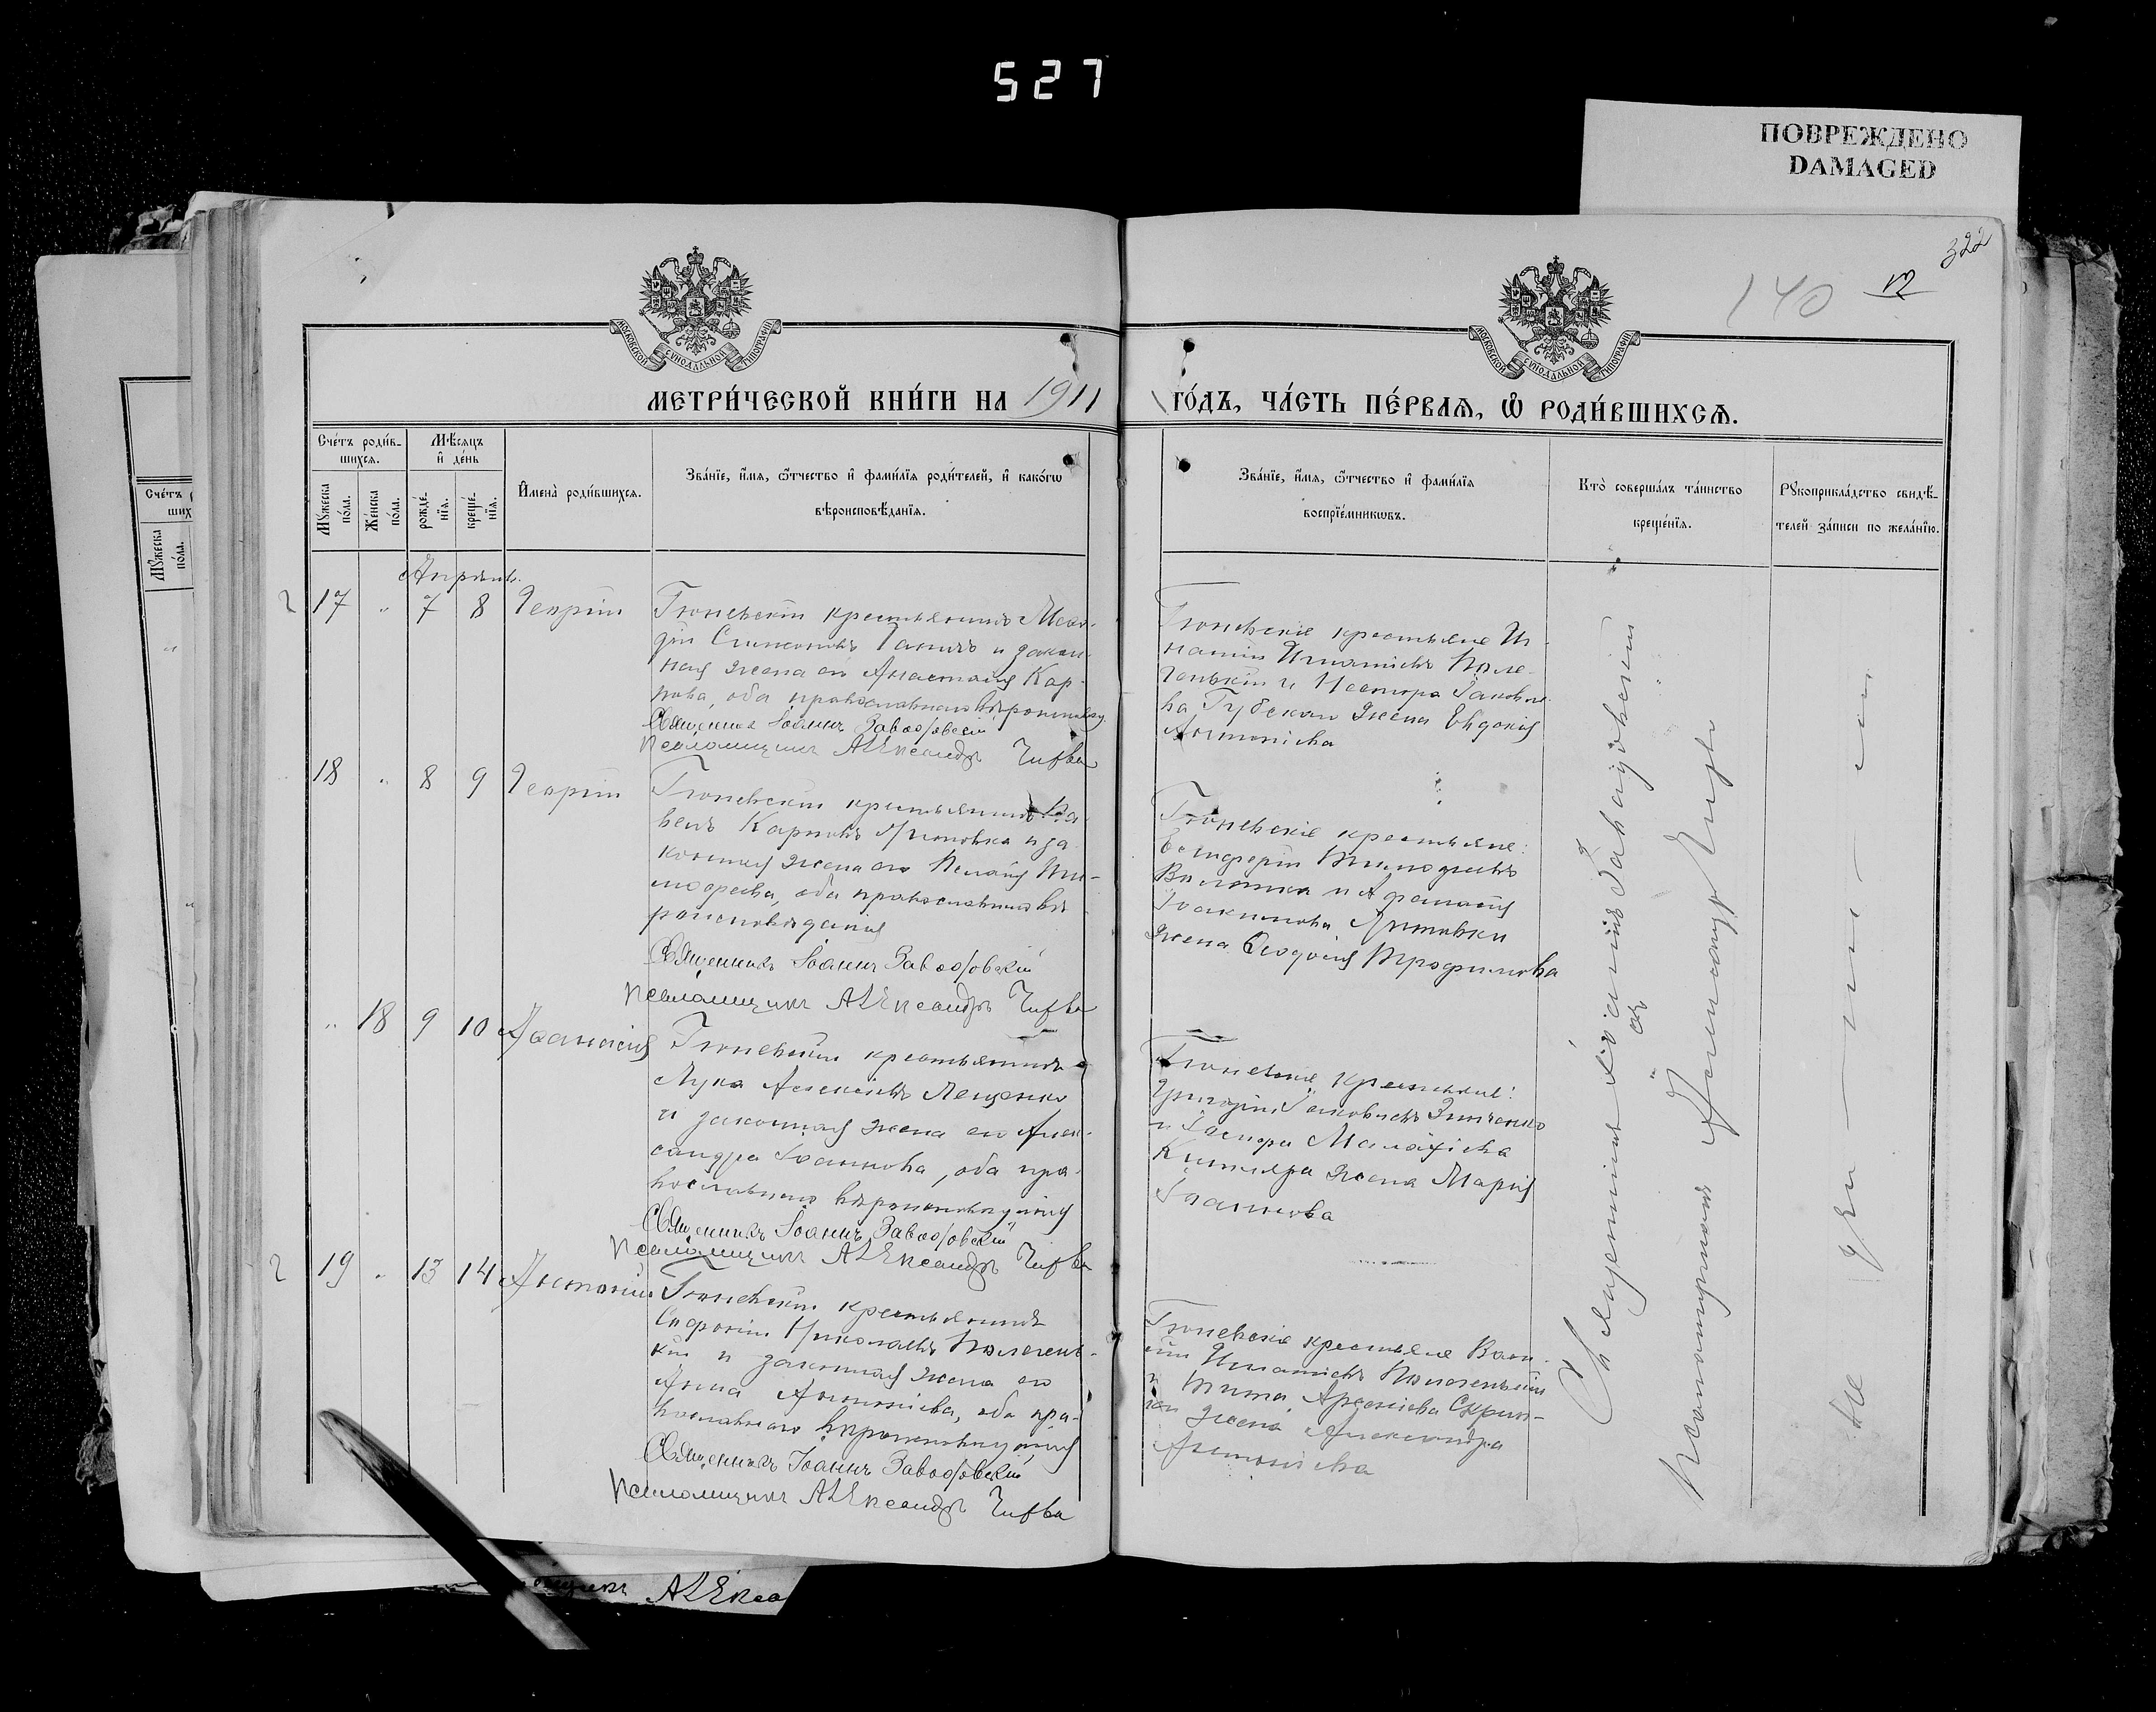 527
ПОВРЕЖДЕНО
DAMAGED
322
140
12
МОСКОВСКОЙ СѴНОДАЛЬНОЙ ТИПОГРАФІИ
МОСКОВСКОЙ СѴНОДАЛЬНОЙ ТИПОГРАФІИ
МЕТРИ́ЧЕСКОЙ КНИ́ГИ НА 1911
ГО́ДЪ, ЧА́СТЬ ПЕ́РВАѦ, Ѡ РОДИ́ВШИХСѦ.
Сче́тъ роди́в-
шихсѧ.
Мѣ́сѧцъ
и҆ де́нь
Мꙋ́жеска
по́ла.
Же́нска
по́ла.
рожде́-
нїѧ.
креще́-
нїѧ.
И҆мена̀ роди́вшихсѧ.
Зва́нїе, и҆́мѧ, ѻ҆́тчество и҆ фамѝлїѧ роди́телей, и҆ како́гѡ
вѣроисповѣ́данїѧ.
Зва́нїе, и҆́мѧ, ѻ҆́тчество и҆ фамѝлїѧ
воспрїе́мникѡвъ.
Кто̀ соверша́лъ та́инство
креще́нїѧ.
Рꙋкоприкла́дство свидѣ́-
телей за́писи по жела́нїю.
Апрѣль.
17 " 7 8 Георгій
Тюневскій крестьянинъ Меѳо-
дій Симоновъ Ганичъ и закон-
ная жена его Анастасія Кар-
пова, оба православнаго вѣроисповѣд.
Священникъ Іоаннъ Завадовскій
Псаломщикъ Александръ Чифва
Тюневскіе крестьяне Иг-
натій Игнатіевъ Поле-
генькій и Нестора Іаковле-
ва Губскаго жена Евдокія
Антоніева
18 " 8 9 Георгій
Тюневскій крестьянинъ Па-
велъ Карповъ Литовка и за-
конная жена его Пелагія Ти-
моѳеева, оба православнаго вѣ-
роисповѣданія
Священникъ Іоаннъ Завадовскій
Псаломщикъ Александръ Чифва
Тюневскіе крестьяне:
Тимоѳеевъ
Волошка и Аѳанасія
Іоакимова Литовки
жена Ѳеодосія Трофимова
" 18 9 10 Аѳанасія
Тюневскій крестьянинъ
Лука Алексіевъ Лещенко
и законная жена его Алек-
сандра Іоаннова, оба пра-
вославнаго вѣроисповѣданія
Священникъ Іоаннъ Завадовскій
Псаломщикъ Александръ Чифва
Тюневскіе крестьяне:
Григорій Іаковлевъ Зинченко
и Іосифа Малахіева
Кушнира жена Марія
Іоаннова
19 " 13 14 Антоній
Тюневскій крестьянинъ
Софроній Николаевъ Полегень-
кій и законная жена его
Анна Антоніева, оба пра-
вославнаго вѣроисповѣданія
Священникъ Іоаннъ Завадовскій
Псаломщикъ Александръ Чифва
Тюневскіе крестьяне Васи-
лій Игнатіевъ Полегенькій
и Тита Арсеніева Скрип-
жена Александра
Антоніева
Священникъ Іоаннъ Завадовскій
съ
Псаломщикомъ Александръ Чифва